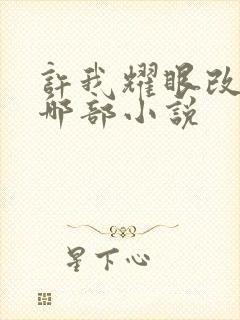 許我耀眼改
那部小說
星下心